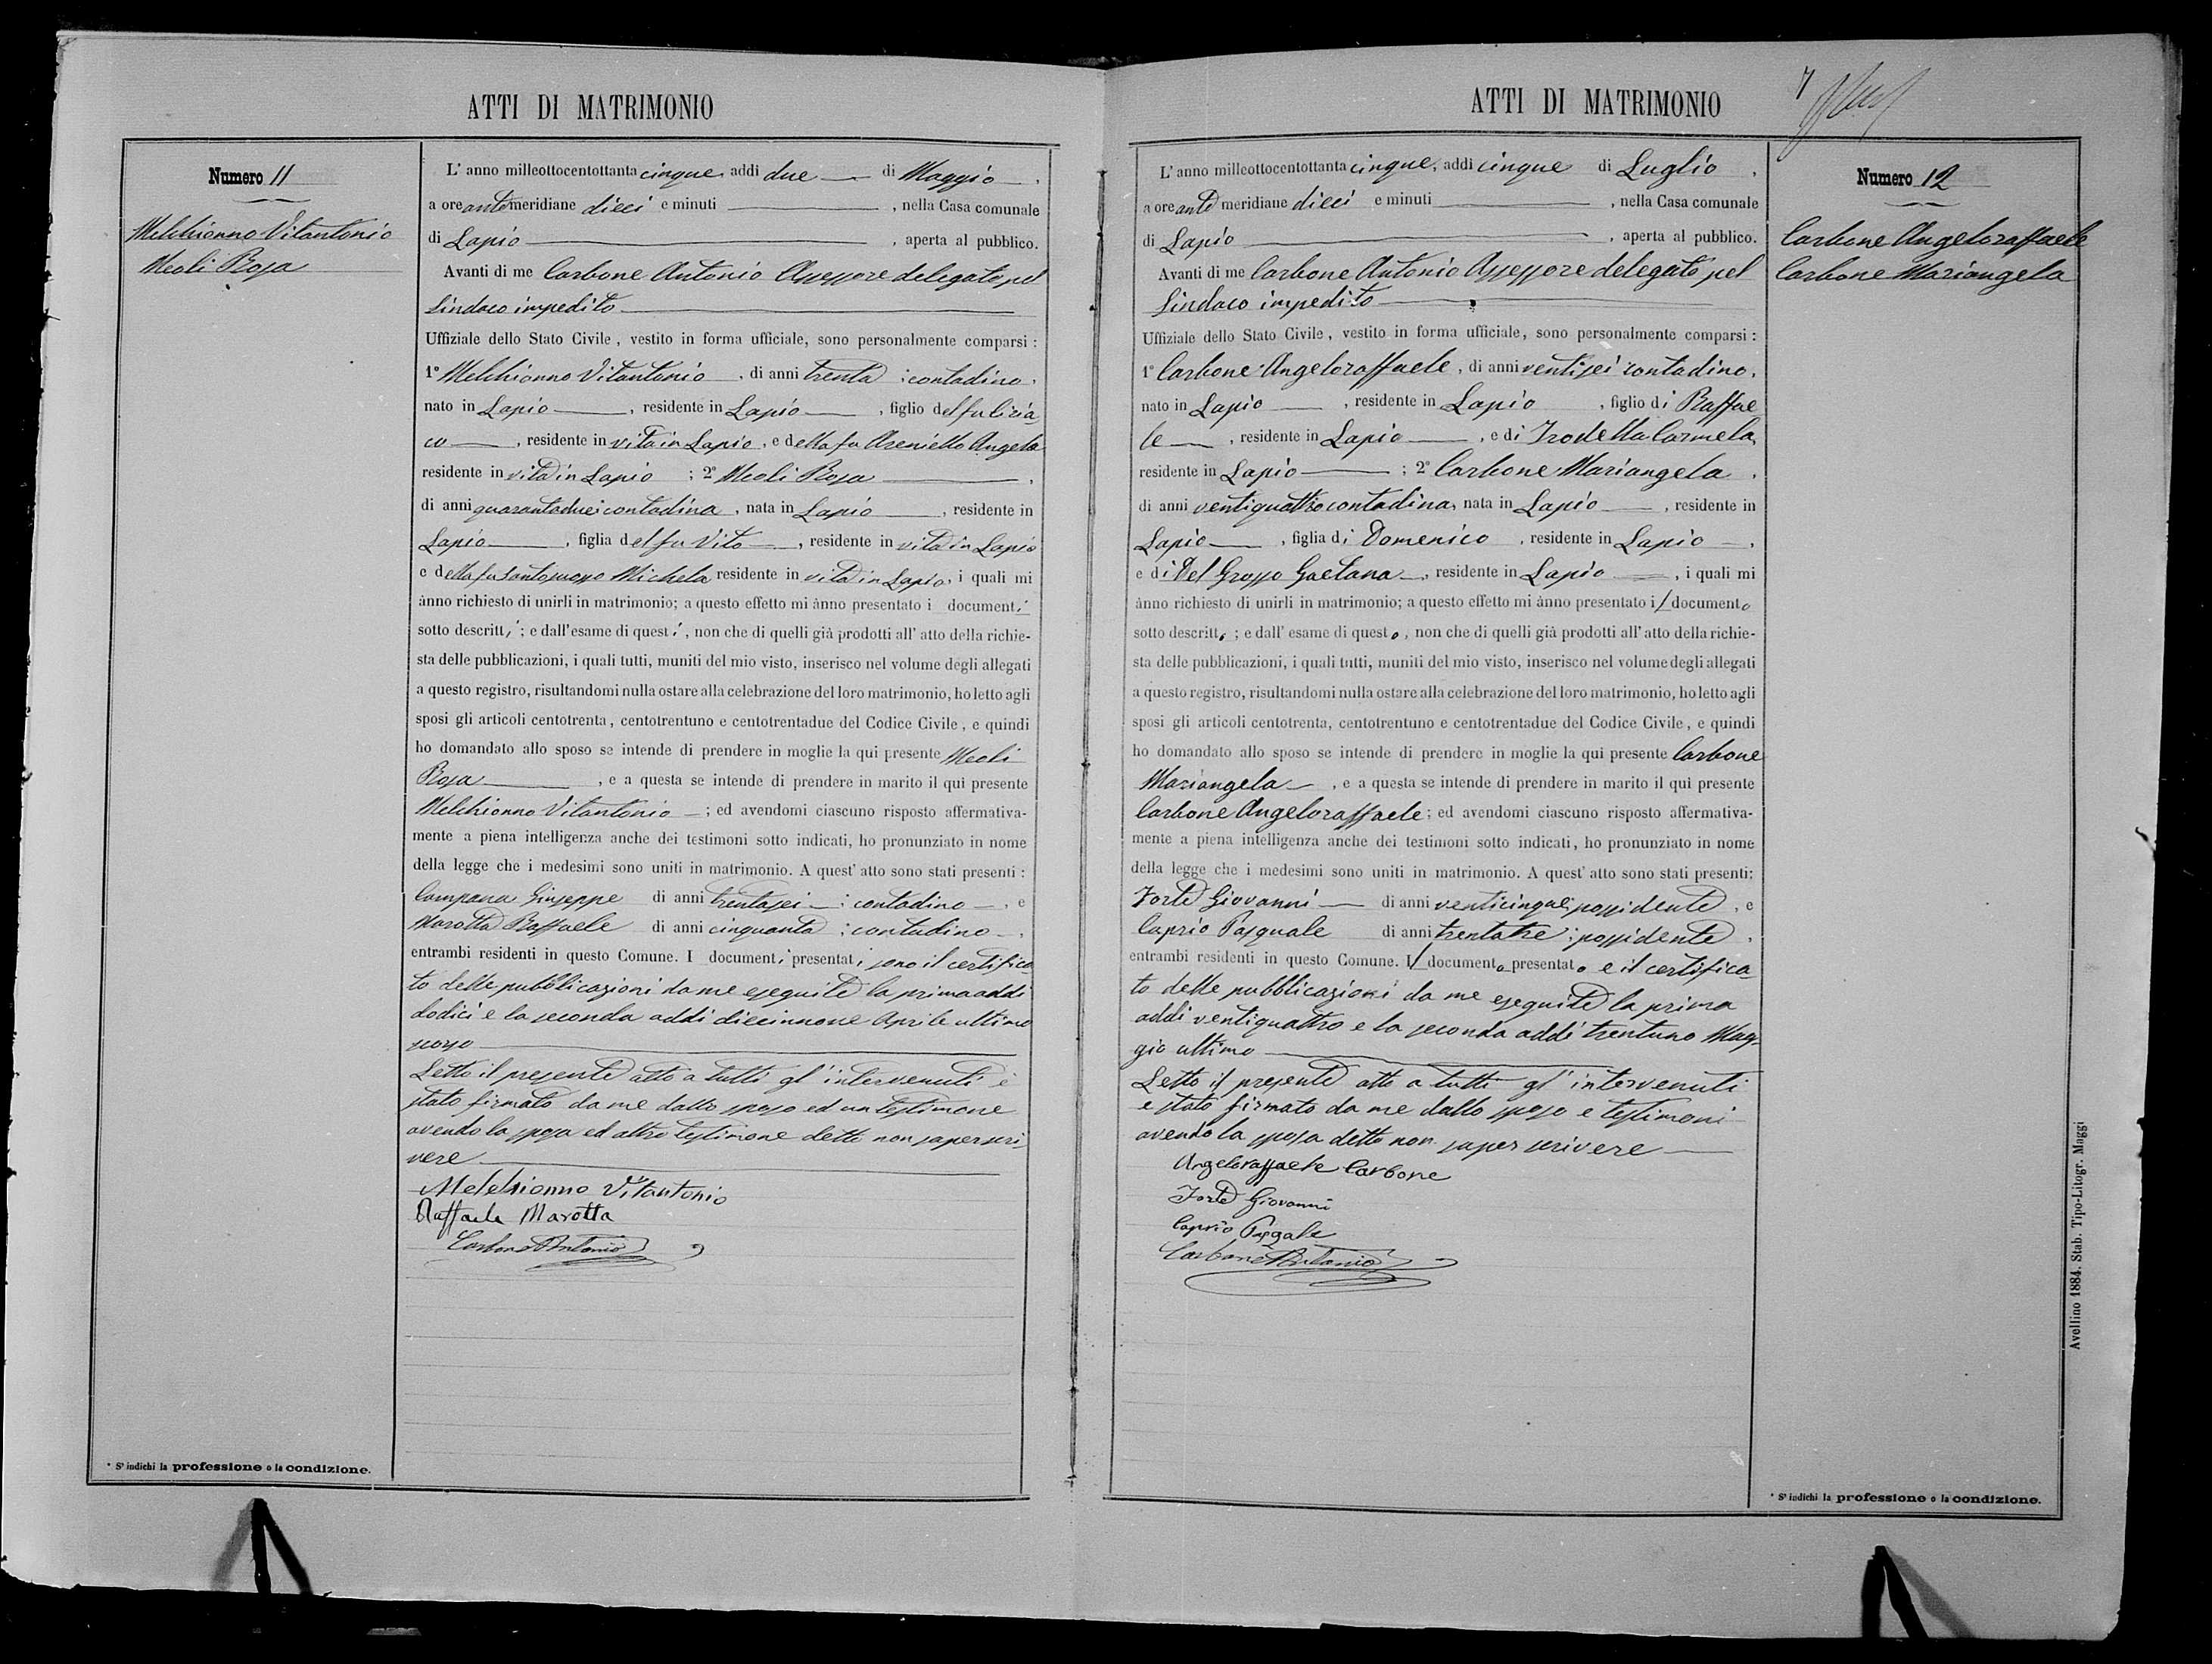 ATTI DI MATRIMONIO
Numero 11
Melchionno Vitantonio
Meoli Rosa
L'anno milleottocentottantacinque, addi due di Maggio,
a ore antemeridiane dieci e minuti , nella Casa comunale
di Lapio , aperta al pubblico.
Avanti di me Carbone Antonio Assessore delegato pel
Sindaco impedito
Uffiziale dello Stato Civile, vestito in forma ufficiale, sono personalmente comparsi:
1º Melchionno Vitantonio, di anni trenta; contadino,
nato in Lapio, residente in Lapio, figlio del fu Ciria
co, residente in vita in Lapio, e della fu Areniello Angela
residente in vita in Lapio; 2º Meoli Rosa,
di anni quarantadue; contadina, nata in Lapio, residente in
Lapio, figlia del fu Vito, residente in vita in Lapio
e della fu Santosuosso Michela residente in vita in Lapio, i quali mi
ànno richiesto di unirli in matrimonio; a questo effetto mi ànno presentato i documenti
sotto descritti; e dall'esame di questi, non che di quelli già prodotti all'atto della richie-
sta delle pubblicazioni, i quali tutti, muniti del mio visto, inserisco nel volume degli allegati
a questo registro, risultandomi nulla ostare alla celebrazione del loro matrimonio, ho letto agli
sposi gli articoli centotrenta, centotrentuno e centotrentadue del Codice Civile, e quindi
ho domandato allo sposo se intende di prendere in moglie la qui presente Meoli
Rosa, e a questa se intende di prendere in marito il qui presente
Melchionno Vitantonio; ed avendomi ciascuno risposto affermativa-
mente a piena intelligenza anche dei testimoni sotto indicati, ho pronunziato in nome
della legge che i medesimi sono uniti in matrimonio. A quest'atto sono stati presenti:
Campana Giuseppe di anni trentasei; contadino, e
Marotta Raffaele di anni cinquanta; contadino,
entrambi residenti in questo Comune. I documenti presentati sono il certifica
to delle pubblicazioni da me eseguite la prima addi
dodici e la seconda addi diecinnove Aprile ultimo
scorso
Letto il presente atto a tutti gl'intervenuti è
stato firmato da me dallo sposo ed un testimone
avendo la sposa ed altro testimone detto non saper scri
vere
Melchionno Vitantonio
Raffaele Marotta
Carbone Antonio
* S'indichi la professione o la condizione.
ATTI DI MATRIMONIO
7
Numero 12
Carbone Angeloraffaele
Carbone Mariangela
L'anno milleottocentottantacinque, addi cinque di Luglio,
a ore antemeridiane dieci e minuti , nella Casa comunale
di Lapio , aperta al pubblico.
Avanti di me Carbone Antonio Assessore delegato pel
Sindaco impedito
Uffiziale dello Stato Civile, vestito in forma ufficiale, sono personalmente comparsi:
1º Carbone Angeloraffaele, di anni ventisei contadino,
nato in Lapio, residente in Lapio, figlio di Raffae
le, residente in Lapio, e di Trodella Carmela,
residente in Lapio; 2º Carbone Mariangela,
di anni ventiquattro contadina, nata in Lapio, residente in
Lapio, figlia di Domenico, residente in Lapio,
e di Del Grosso Gaetana, residente in Lapio, i quali mi
ànno richiesto di unirli in matrimonio; a questo effetto mi ànno presentato il documento
sotto descritto; e dall'esame di questo, non che di quelli già prodotti all'atto della richie-
sta delle pubblicazioni, i quali tutti, muniti del mio visto, inserisco nel volume degli allegati
a questo registro, risultandomi nulla ostare alla celebrazione del loro matrimonio, ho letto agli
sposi gli articoli centotrenta, centotrentuno e centotrentadue del Codice Civile, e quindi
ho domandato allo sposo se intende di prendere in moglie la qui presente Carbone
Mariangela, e a questa se intende di prendere in marito il qui presente
Carbone Angeloraffaele; ed avendomi ciascuno risposto affermativa-
mente a piena intelligenza anche dei testimoni sotto indicati, ho pronunziato in nome
della legge che i medesimi sono uniti in matrimonio. A quest'atto sono stati presenti:
Forte Giovanni di anni venticinque; possidente, e
Caprio Pasquale di anni trentatre; possidente,
entrambi residenti in questo Comune. Il documento presentato e il certifica
to delle pubblicazioni da me eseguite la prima
addi ventiquattro e la seconda addi trentuno Mag-
gio ultimo
Letto il presente atto a tutti gl'intervenuti
e stato firmato da me dallo sposo e testimoni
avendo la sposa detto non saper scrivere
Angeloraffaele Carbone
Forte Giovanni
Caprio Pasqale
Carbone Antonio
* S'indichi la professione o la condizione.
Avellino 1884. Stab. Tipo-Litogr. Maggi